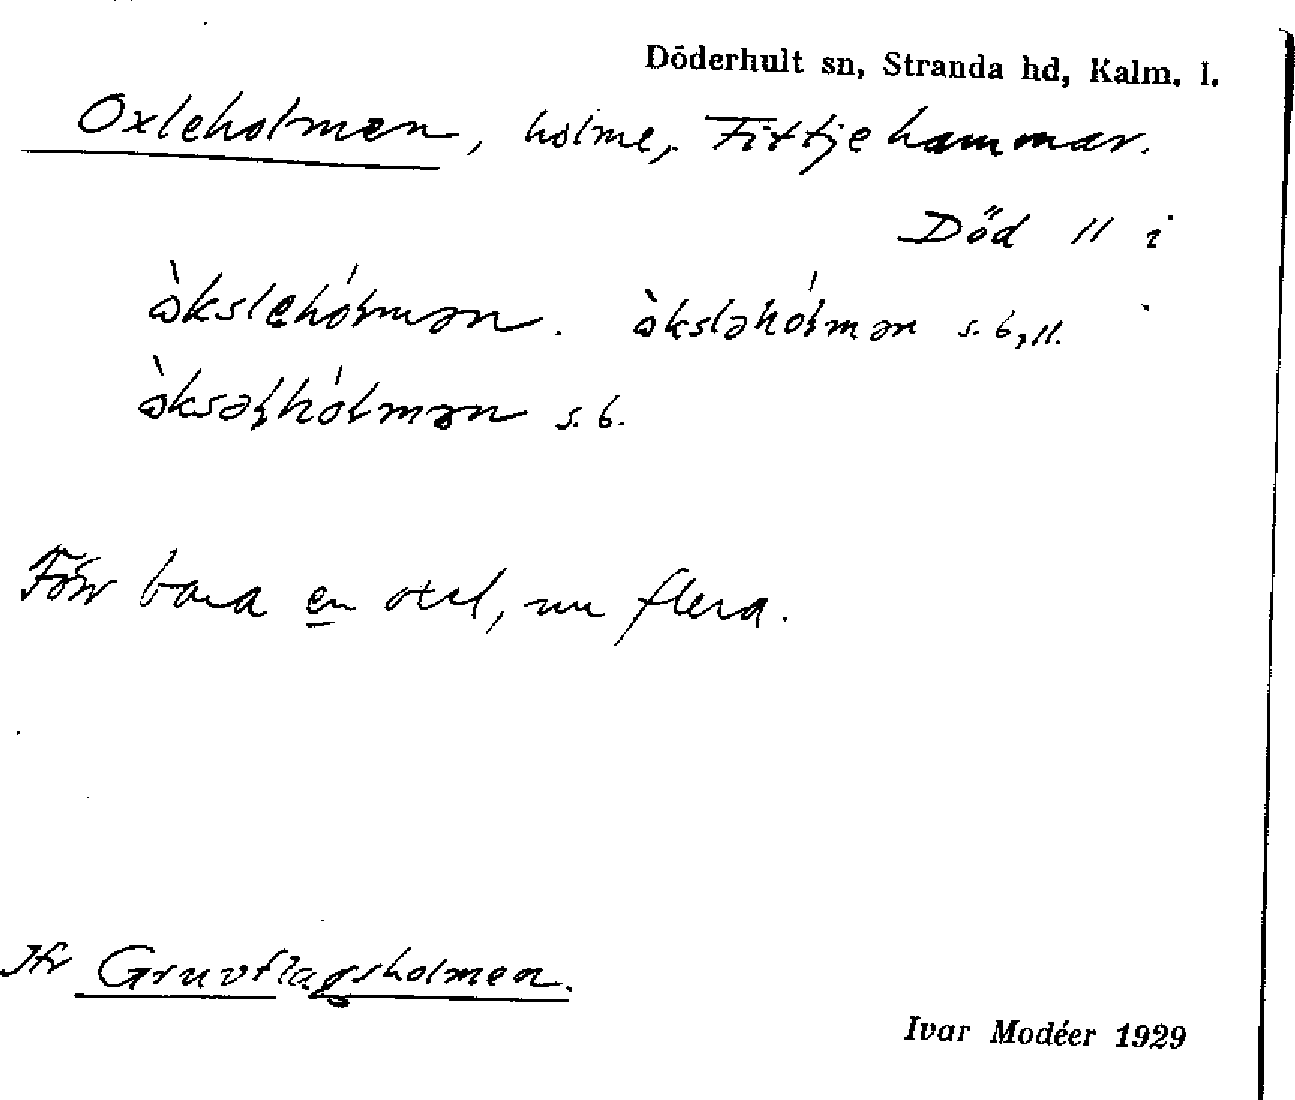 Döderhult sn, Stranda hd, Kalm. l.
Oxleholmen, holme, Fittjehammar.
Död 11 i
òksləhólmən. òksləhólmən s. 6, 11.
òksəlhólmən s. 6.
Förr bara en oxel, nu flera.
Jfr Gruvflagsholmen.
Ivar Modéer 1929